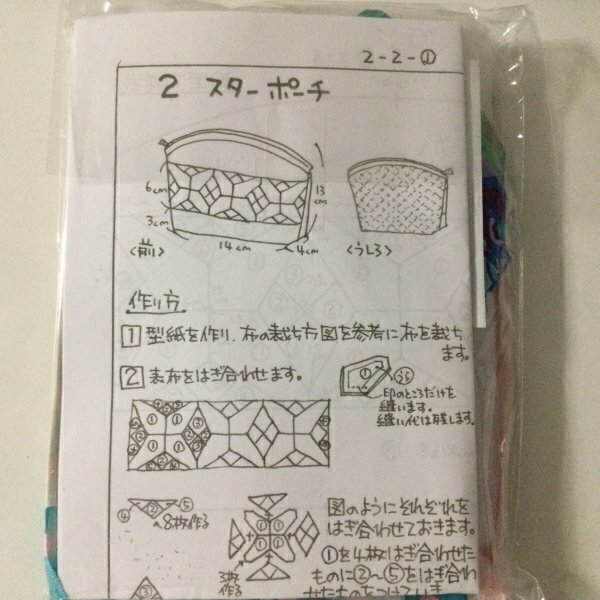 2-2-①
2 スターポーチ
6cm
3cm
13cm
14cm
4cm
<前>
<うしろ>
作り方
1 型紙を作り、布の裁ち方図を参考に布を裁ち
ます。
2 表布をはぎ合わせます。
① うら
印のところだけを
縫います。
縫い代は残します。
④ ② ⑤
8枚作る
3枚
作る
① ① ① ①
③
図のようにそれぞれを
はぎ合わせておきます。
①を4枚はぎ合わせた
ものに②～⑤をはぎ合わ